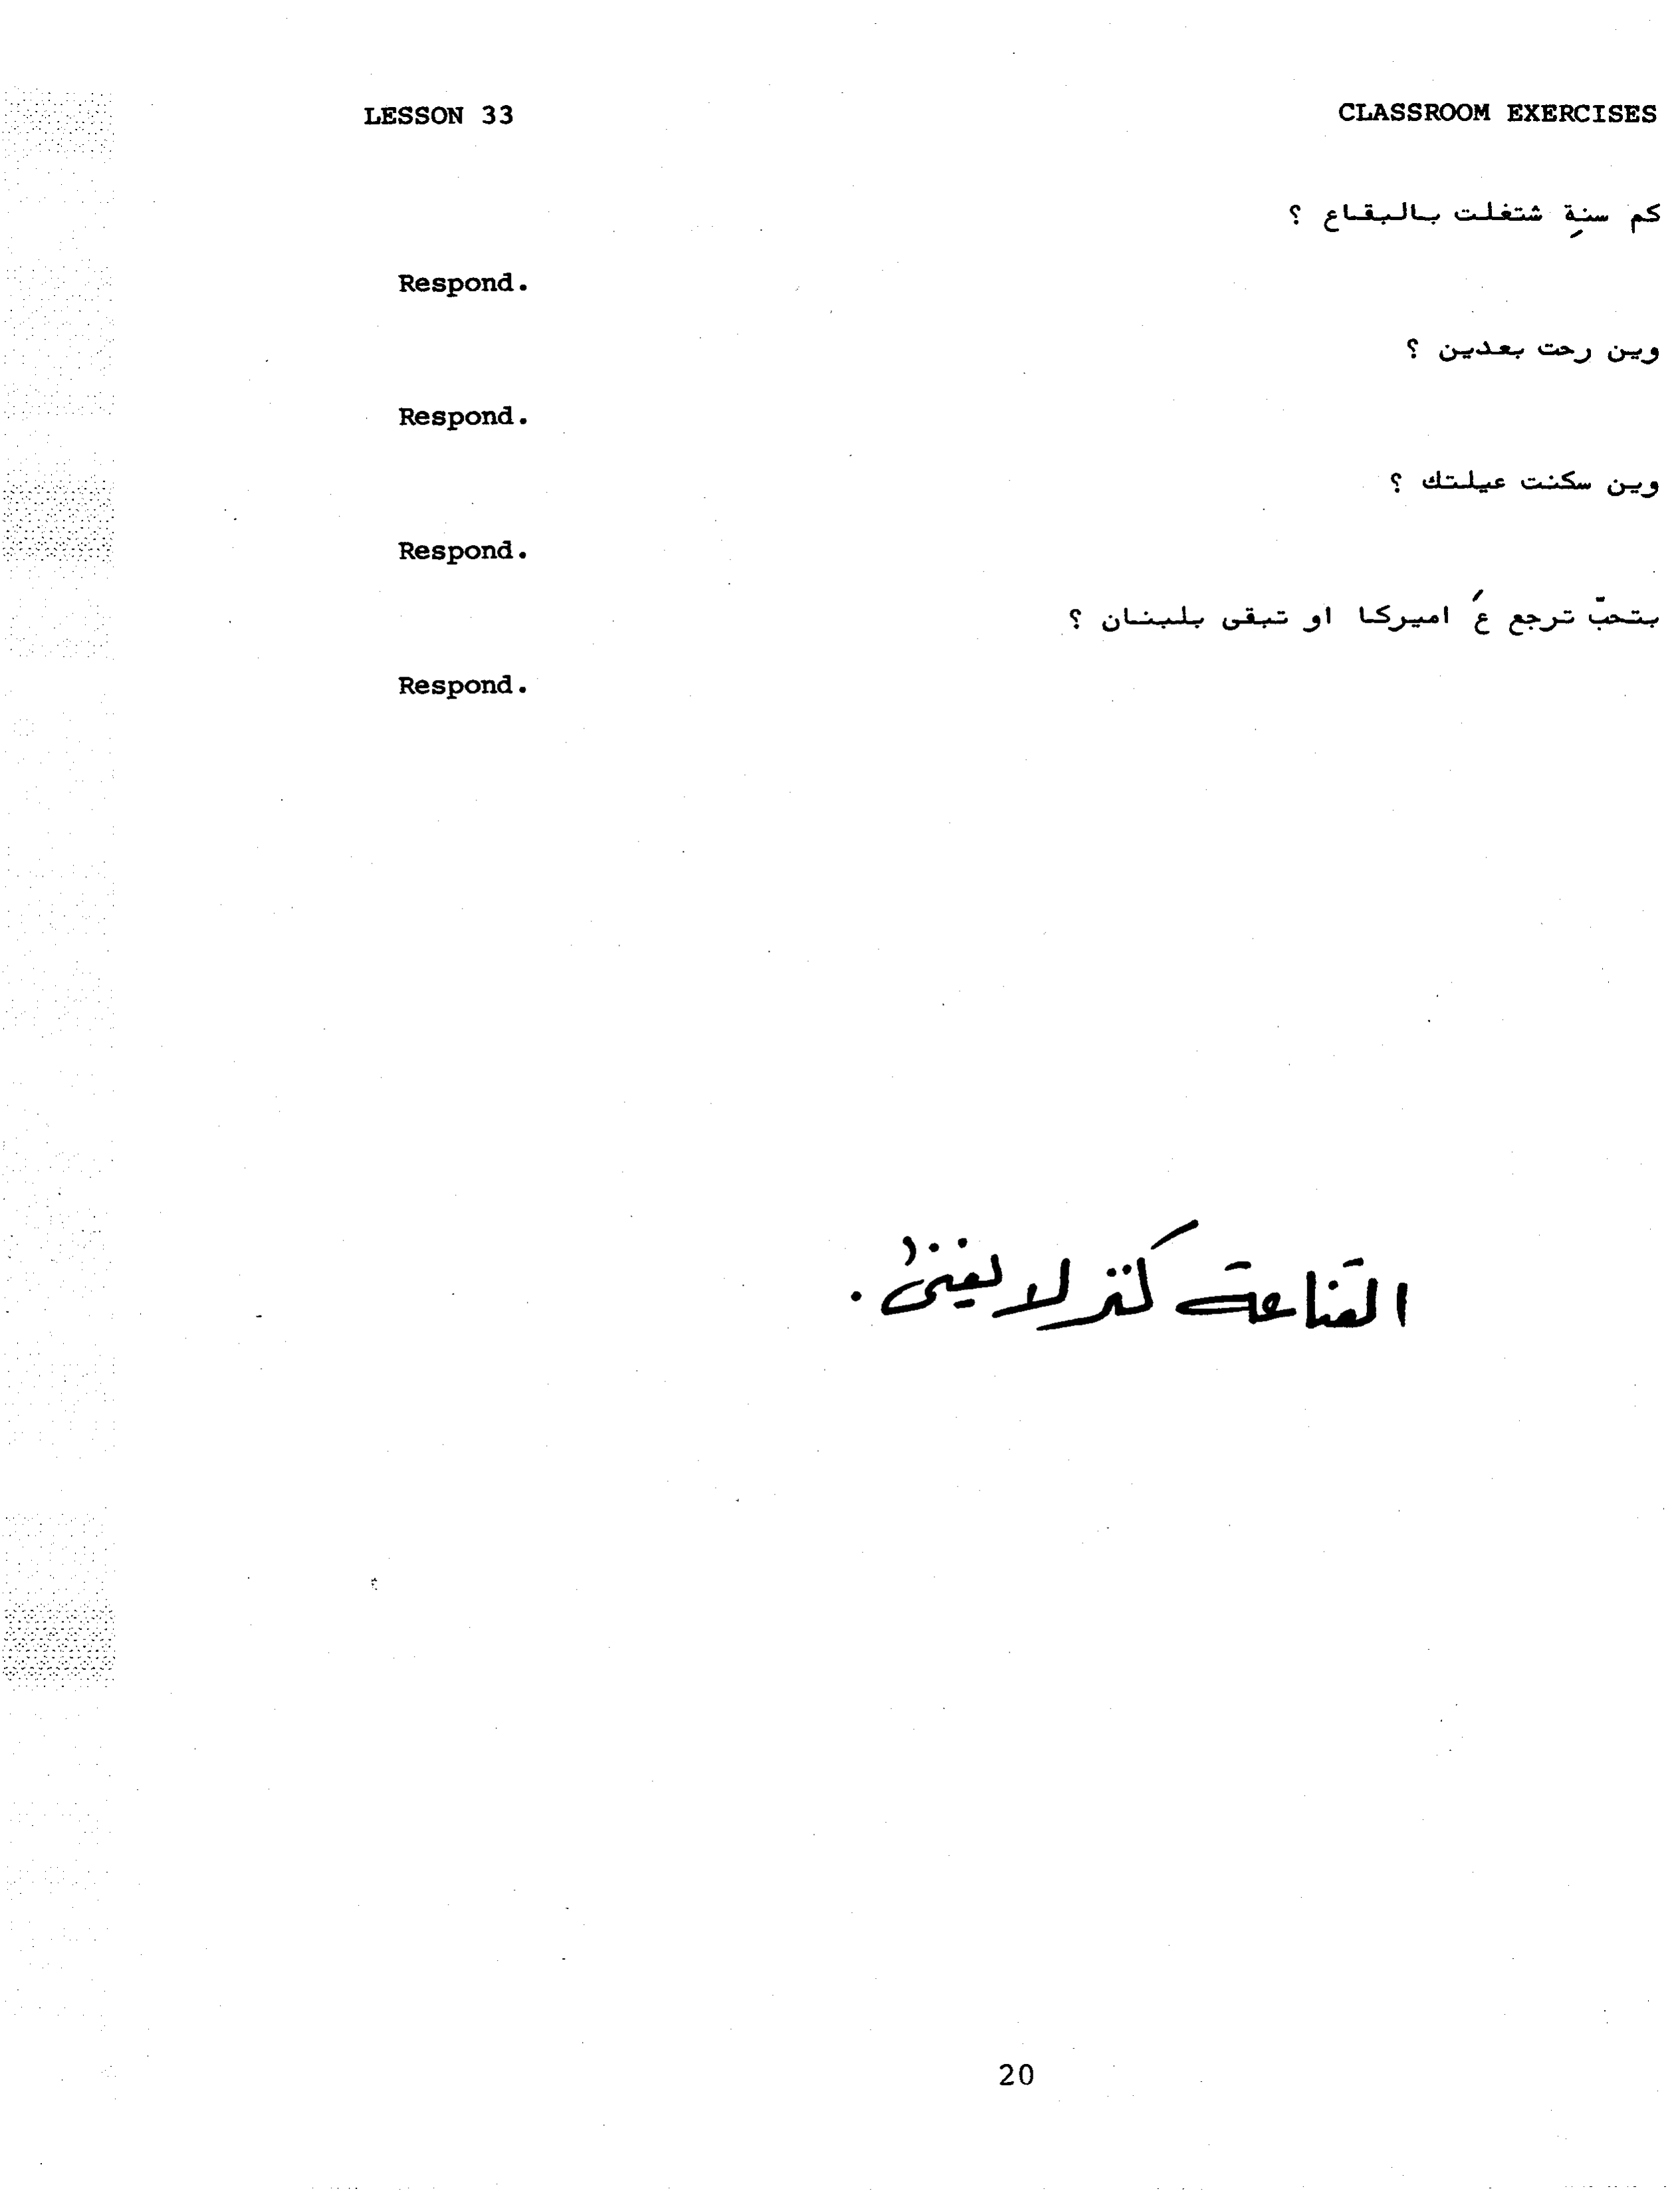 LESSON 33
CLASSROOM EXERCISES
كم سنةِ شتغلت بالبقاع ؟
Respond.
وين رحت بعدين ؟
Respond.
وين سكنت عيلتك ؟
Respond.
بتحبّ ترجع عَ اميركا او تبقى بلبنان ؟
Respond.
القناعة كنز لا يفنى .
20